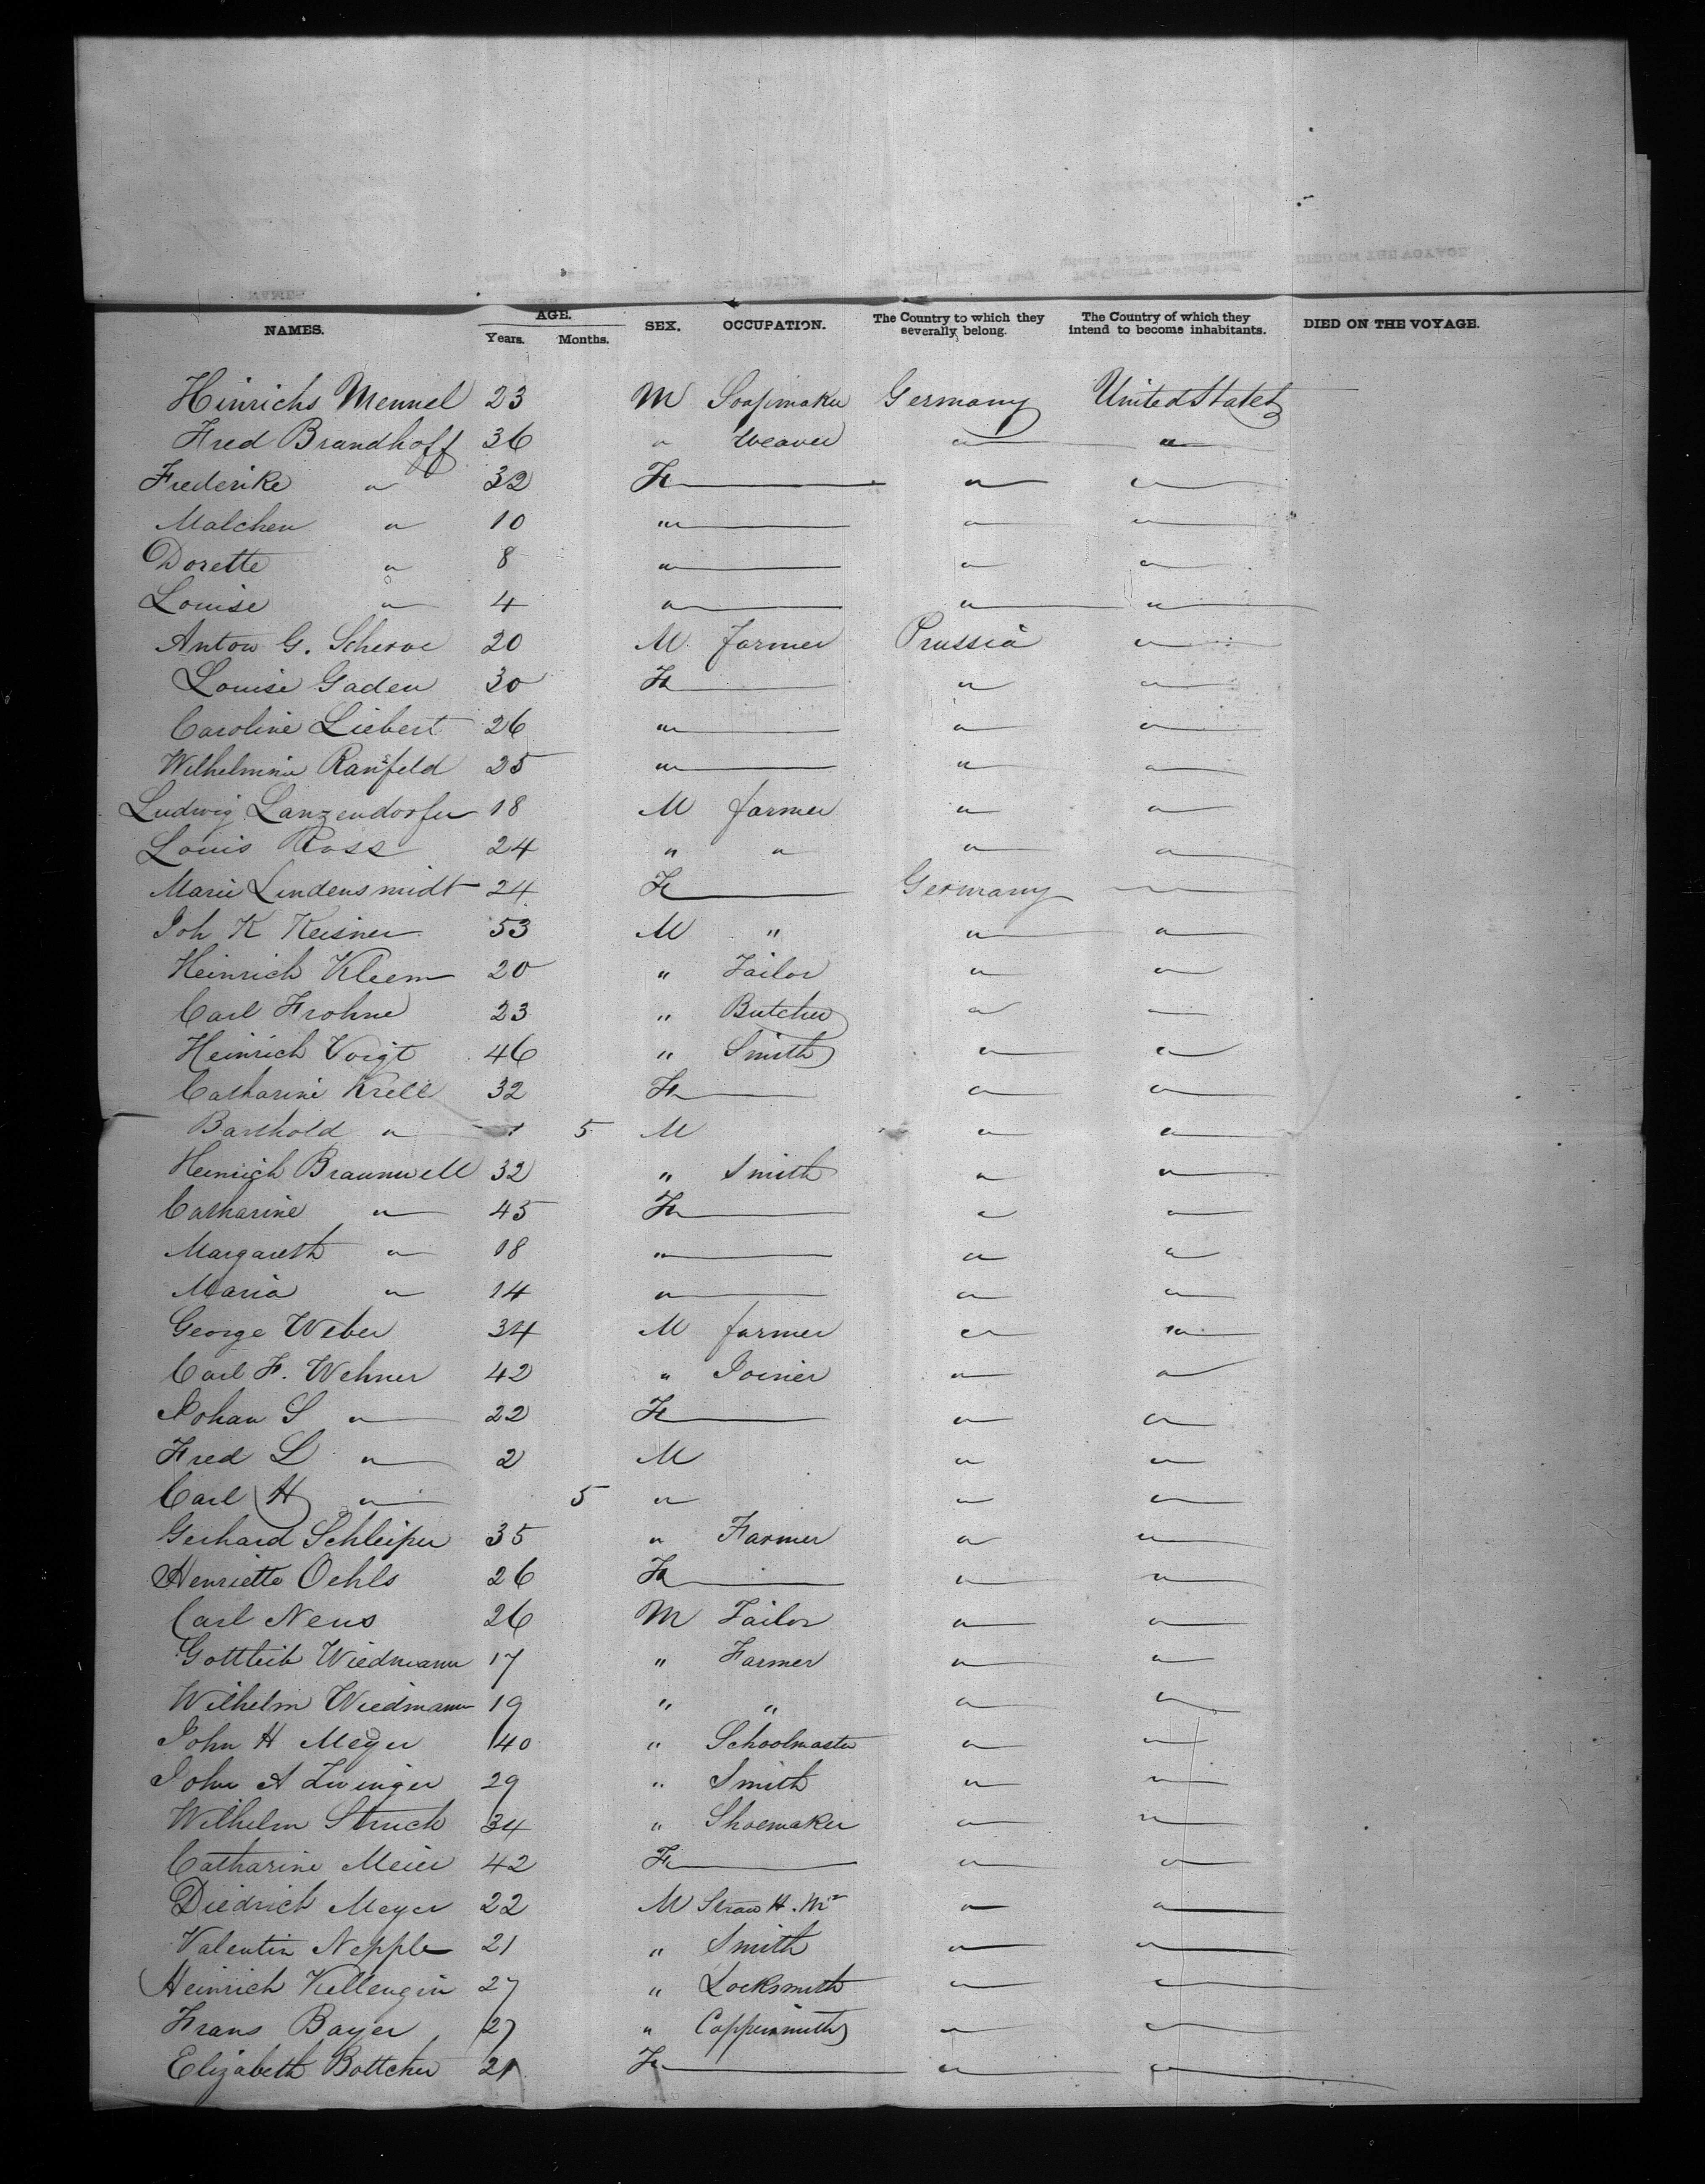 NAMES. AGE. Years. Months. SEX. OCCUPATION. The Country to which they severally belong. The Country of which they intend to become inhabitants. DIED ON THE VOYAGE.
Hinrichs Mennel 23 M Soapmaker Germany United States
Fred Brandhoff 36 " Weaver " "
Frederike " 32 F " "
Malchen " 10 " " "
Dorette " 8 " " "
Louise " 4 " " "
Anton G. 20 M farmer Prussia "
Louise Gaden 30 F " "
Caroline Liebert 26 " " "
Wilhelmine Ransfeld 25 " " "
Ludwig Lanzendorfer 18 M farmer " "
Louis Ross 24 " " " "
Marie Lindensmidt 24 F Germany "
Joh K Keisner 53 M " " "
Heinrich Kleem 20 " Tailor " "
Carl Frohne 23 " Butcher "
Heinrich Voigt 46 " Smith " "
Catharine Krell 32 F " "
Barthold " 5 M " "
Heinrich Braunwell 32 " Smith " "
Catharine " 45 F " "
Margareth " 18 " " "
Maria " 14 " " "
George Weber 34 M farmer " "
Carl F. Wehner 42 " Joiner " "
Johan S " 22 F " "
Fred L " 2 M " "
Carl H " 5 " " "
Gerhard Schleiper 35 " Farmer " "
Henriette Oehls 26 F " "
Carl Neus 26 M Tailor " "
Gottleib Wiedmann 17 " Farmer " "
Wilhelm Wiedmann 19 " " " "
John H Meyer 40 " Schoolmaster " "
John A Zwinger 29 " Smith " "
Wilhelm Struck 34 " Shoemaker " "
Catharine Meier 42 F " "
Diedrich Meyer 22 M Straw H. Mr " "
Valentin Nepple 21 " Smith " "
Heinrich Kellengin 27 " Locksmith " "
Frans Bayer 27 " Coppersmith " "
Elizabeth Bottcher 21 F " "